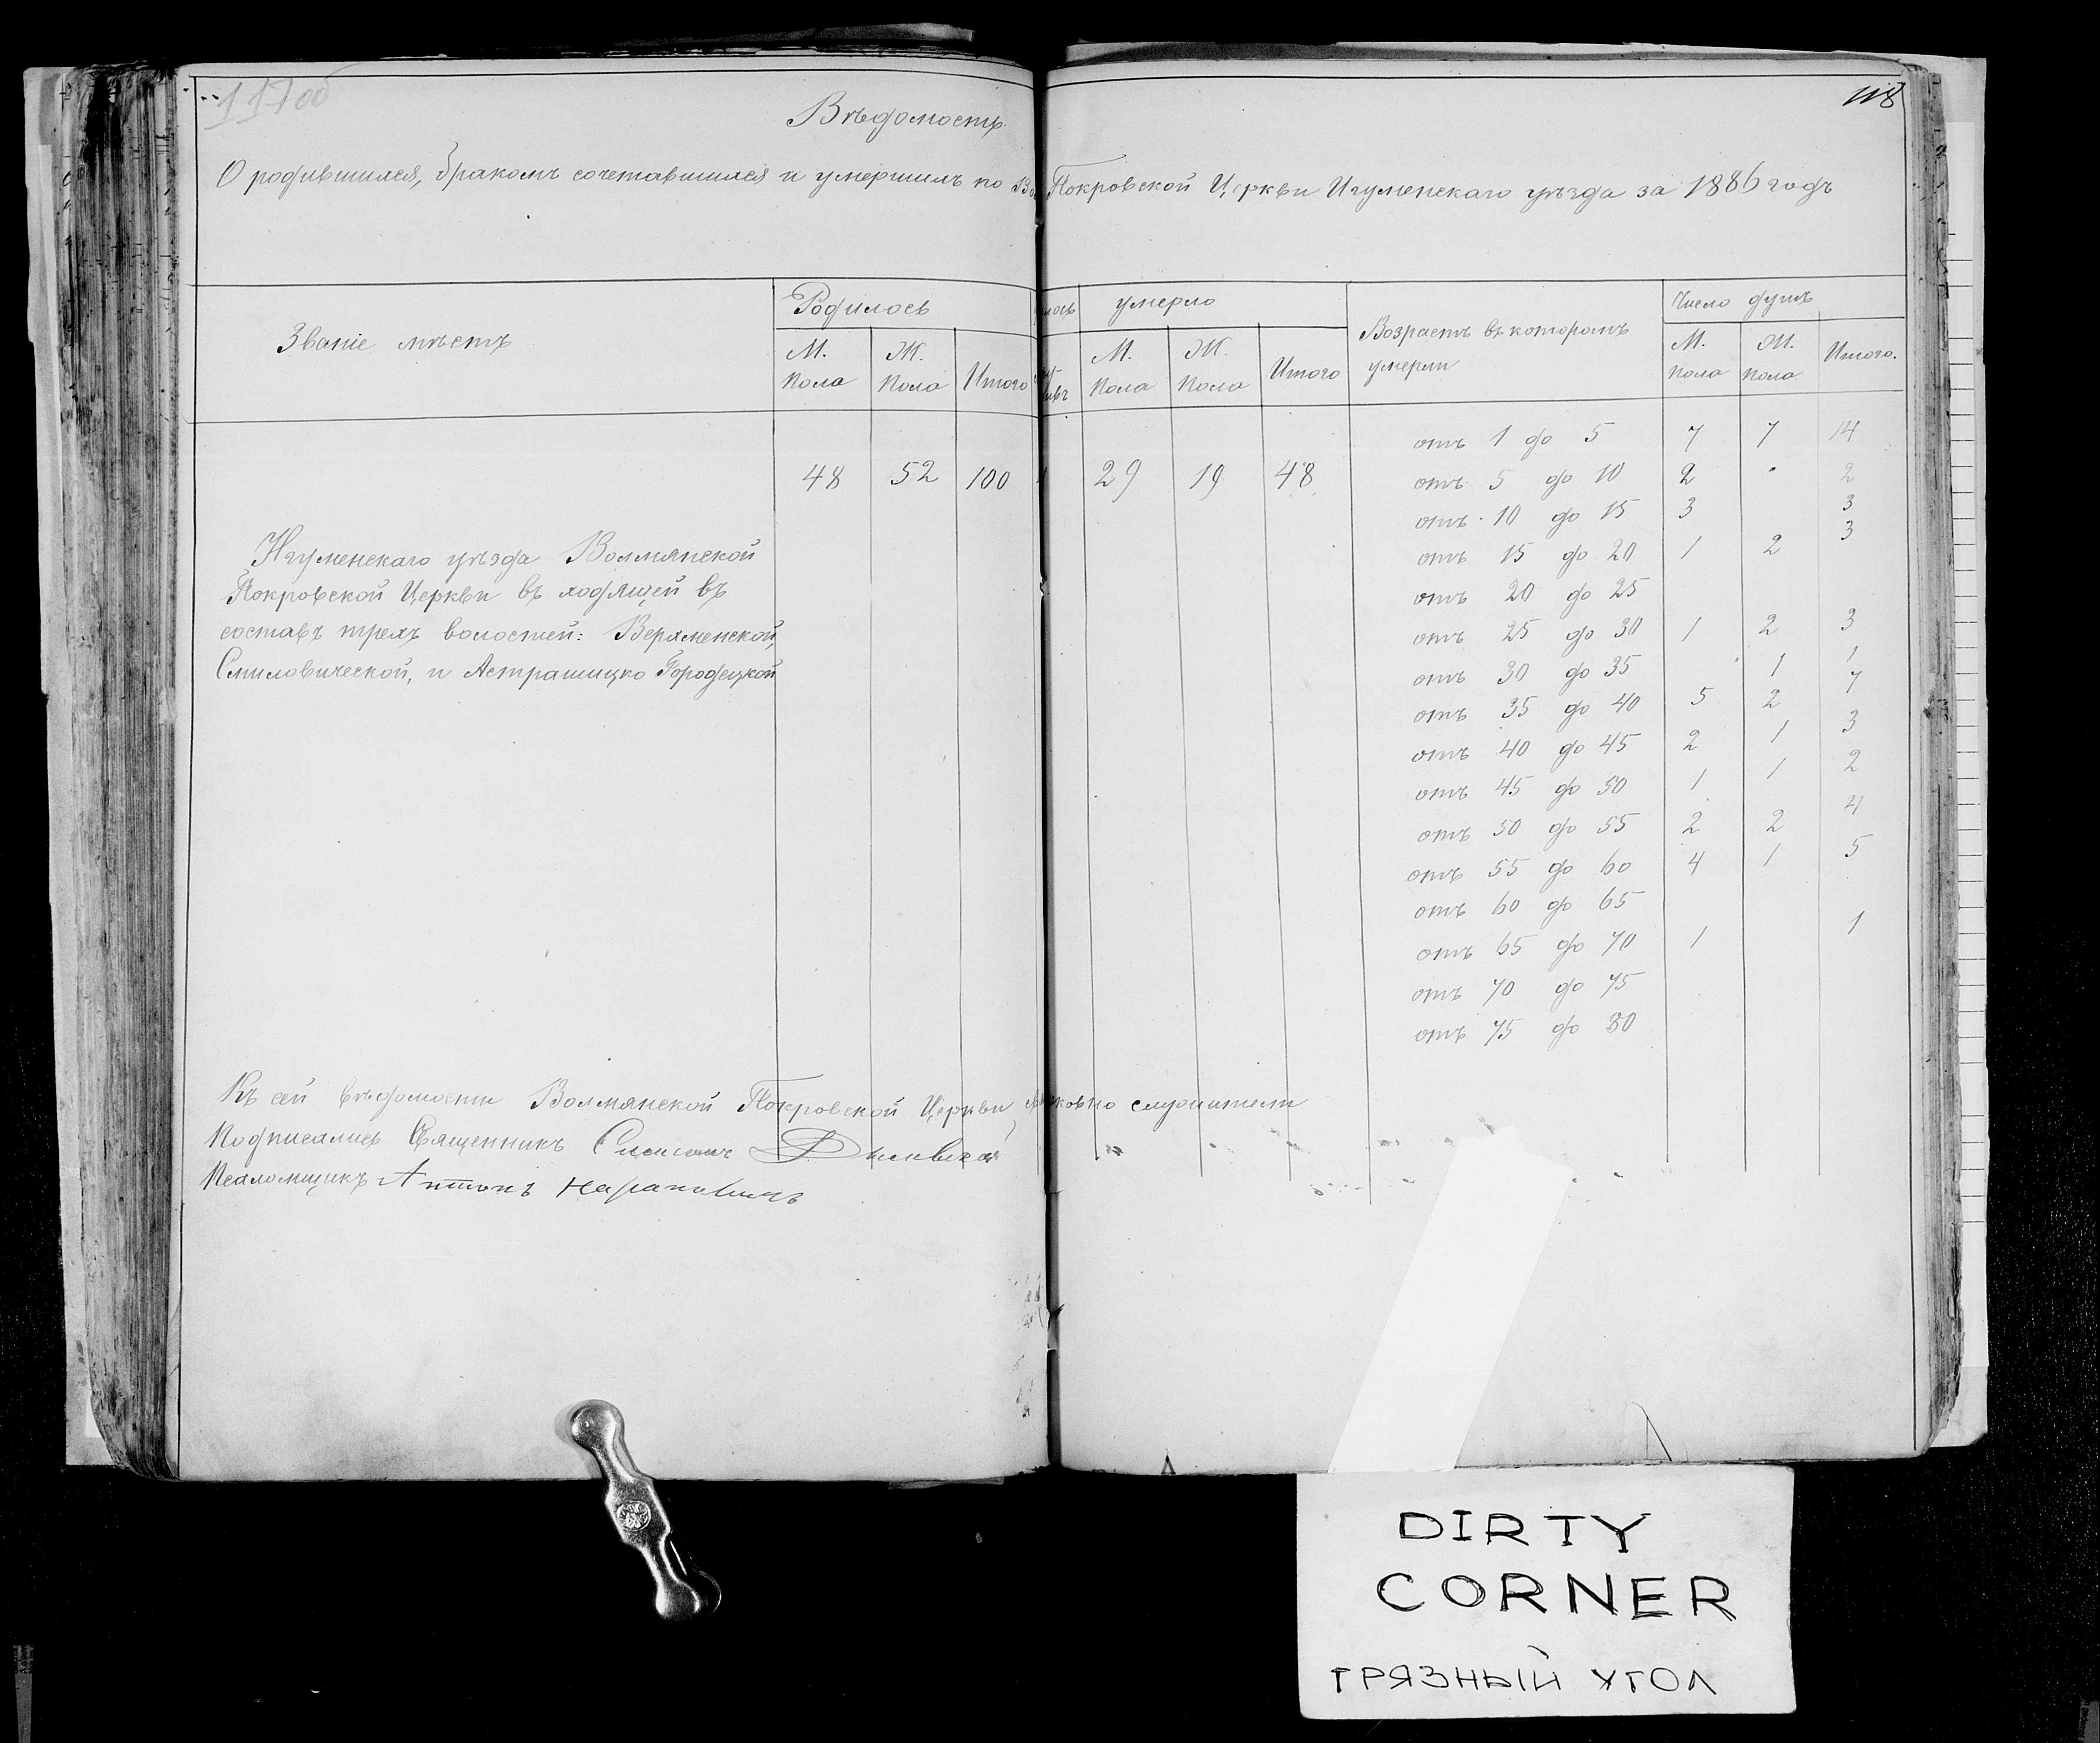 117об
118
Вѣдомость
О родившихся, бракомъ сочетавшихся и умершихъ по Покровской Церкви Игуменскаго уѣзда за 1886 годъ
Званіе мѣстъ
Родилось
умерло
Возрастъ въ которомъ умерли
Число душъ
М. пола Ж. пола Итого
М. пола Ж. пола Итого
М. пола Ж. пола Итого.
48 52 100 29 19 48
отъ 1 до 5 7 7 14
отъ 5 до 10 2 " 2
отъ 10 до 15 3 3
отъ 15 до 20 1 2 3
отъ 20 до 25
отъ 25 до 30 1 2 3
отъ 30 до 35 1 1
отъ 35 до 40 5 2 7
отъ 40 до 45 2 1 3
отъ 45 до 50 1 1 2
отъ 50 до 55 2 2 4
отъ 55 до 60 4 1 5
отъ 60 до 65
отъ 65 до 70 1 1
отъ 70 до 75
отъ 75 до 80
Игуменскаго уѣзда Волмянской
Покровской Церкви въ ходящей въ
составъ трехъ волостей: Верхменской,
Смиловической, и Астрашицко Городецкой
Къ сей вѣдомости Волмянской Покровской Церкви служители
Подписались Священникъ
Псаломщикъ Антонъ
DIRTY
CORNER
ГРЯЗНЫЙ УГОЛ